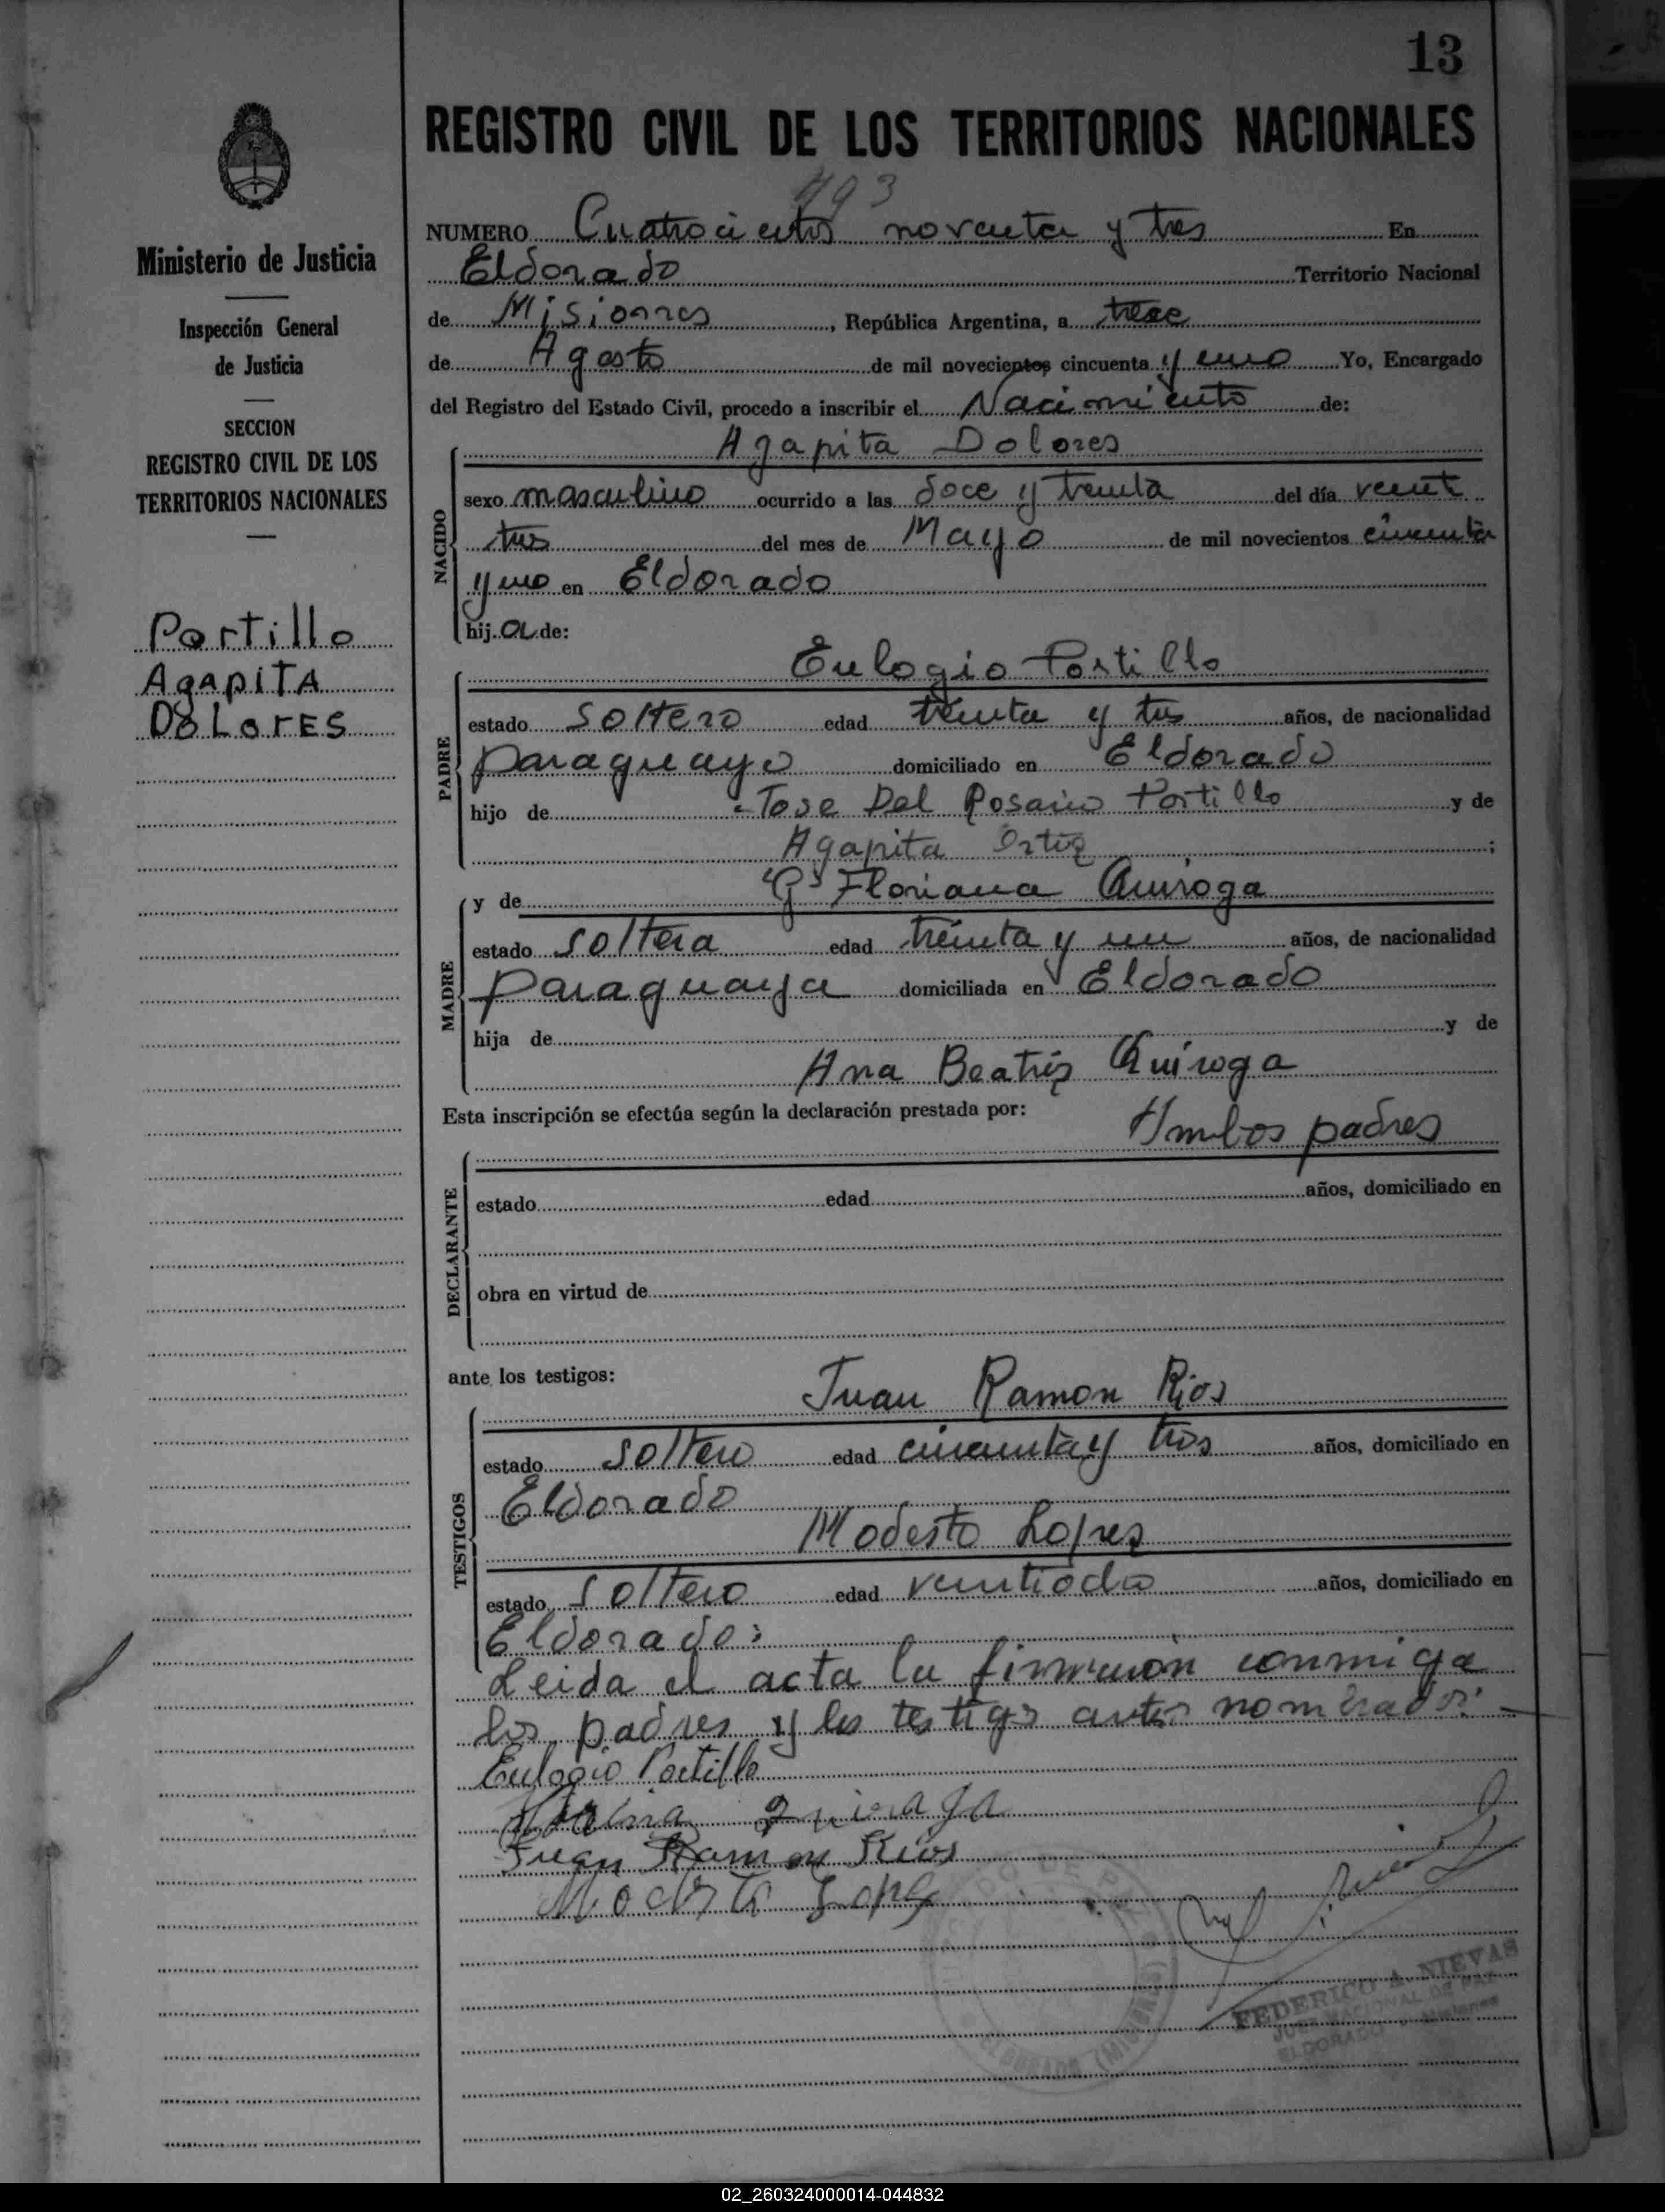 13
REGISTRO CIVIL DE LOS TERRITORIOS NACIONALES
493
Ministerio de Justicia
Inspección General
de Justicia
SECCION
REGISTRO CIVIL DE LOS
TERRITORIOS NACIONALES
Portillo
AgApiTA
DOLorES
NUMERO Cuatrocientos noventa y tres En
Eldorado Territorio Nacional
de Misiones, República Argentina, a trece
de Agosto de mil novecientos cincuenta y uno Yo, Encargado
del Registro del Estado Civil, procedo a inscribir el Nacimiento de:
Agapita Dolores
NACIDO
sexo masculino ocurrido a las doce y treinta del día veint
tres del mes de Mayo de mil novecientos cincuenta
y uno en Eldorado
hij a de:
Eulogio Portillo
PADRE
estado soltero edad treinta y tres años, de nacionalidad
paraguayo domiciliado en Eldorado
hijo de Jose Del Rosario Portillo y de
Agapita Ortiz ;
y de Floriana Quiroga
MADRE
estado soltera edad treinta y un años, de nacionalidad
paraguaya domiciliada en Eldorado
hija de y de
Ana Beatriz Quiroga
Esta inscripción se efectúa según la declaración prestada por:
Ambos padres
DECLARANTE
estado edad años, domiciliado en
obra en virtud de
ante los testigos:
Juan Ramon Rios
TESTIGOS
estado soltero edad cincuenta y tres años, domiciliado en
Eldorado
Modesto Lopez
estado soltero edad ventiocho años, domiciliado en
Eldorado:
Leida el acta la firmaron conmigo
los padres y los testigos antes nombrados:
Eulogio Portillo
Quiroga
Juan Ramon Rios
Modesto Lopez
FEDERICO A. NIEVAS
JUEZ NACIONAL DE PAZ
ELDORADO Misiones
ELDORADO (MISIONES)
02_260324000014-044832